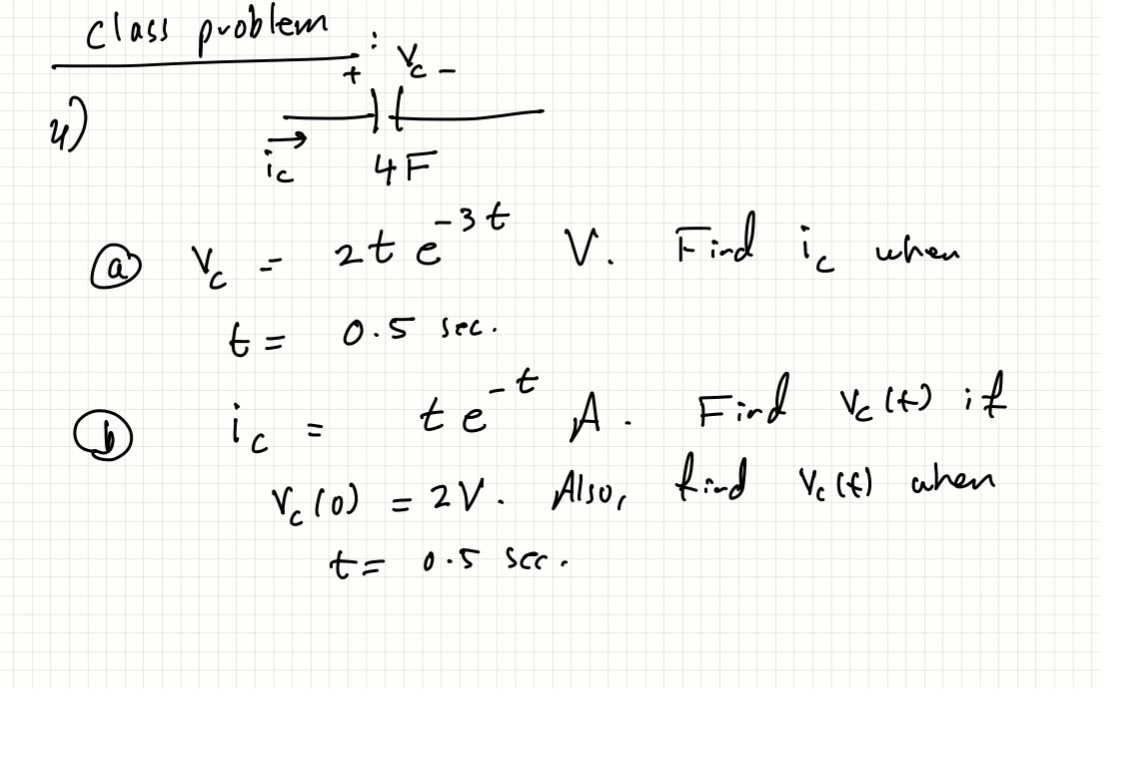 class problem :
+ Vc -
4)
ic 4F
(a) Vc = 2t e^{-3t} V. Find ic when
t = 0.5 sec.
(b) ic = t e^{-t} A. Find Vc(t) if
Vc(0) = 2V. Also, find Vc(t) when
t = 0.5 sec.